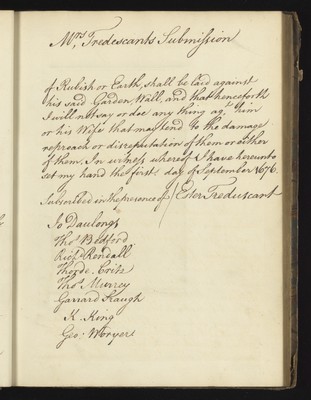 Mrs. Tredescants Submission
of Rubish or Earth, shall be laid against
his said Garden Wall, and that henceforth
I will not say or doe any thing agt. him
or his Wife that may tend to the damage
reproach or disreputation of them or either
of them. In witness whereof I have hereunto
set my hand the first day of September 1676.
Subscribed in the presence of Ester Treduscant
Jo Daulong
Thos Bedford
Ricd Rendall
Thos Murrey
Garrard Haugh
K. King
Geo: